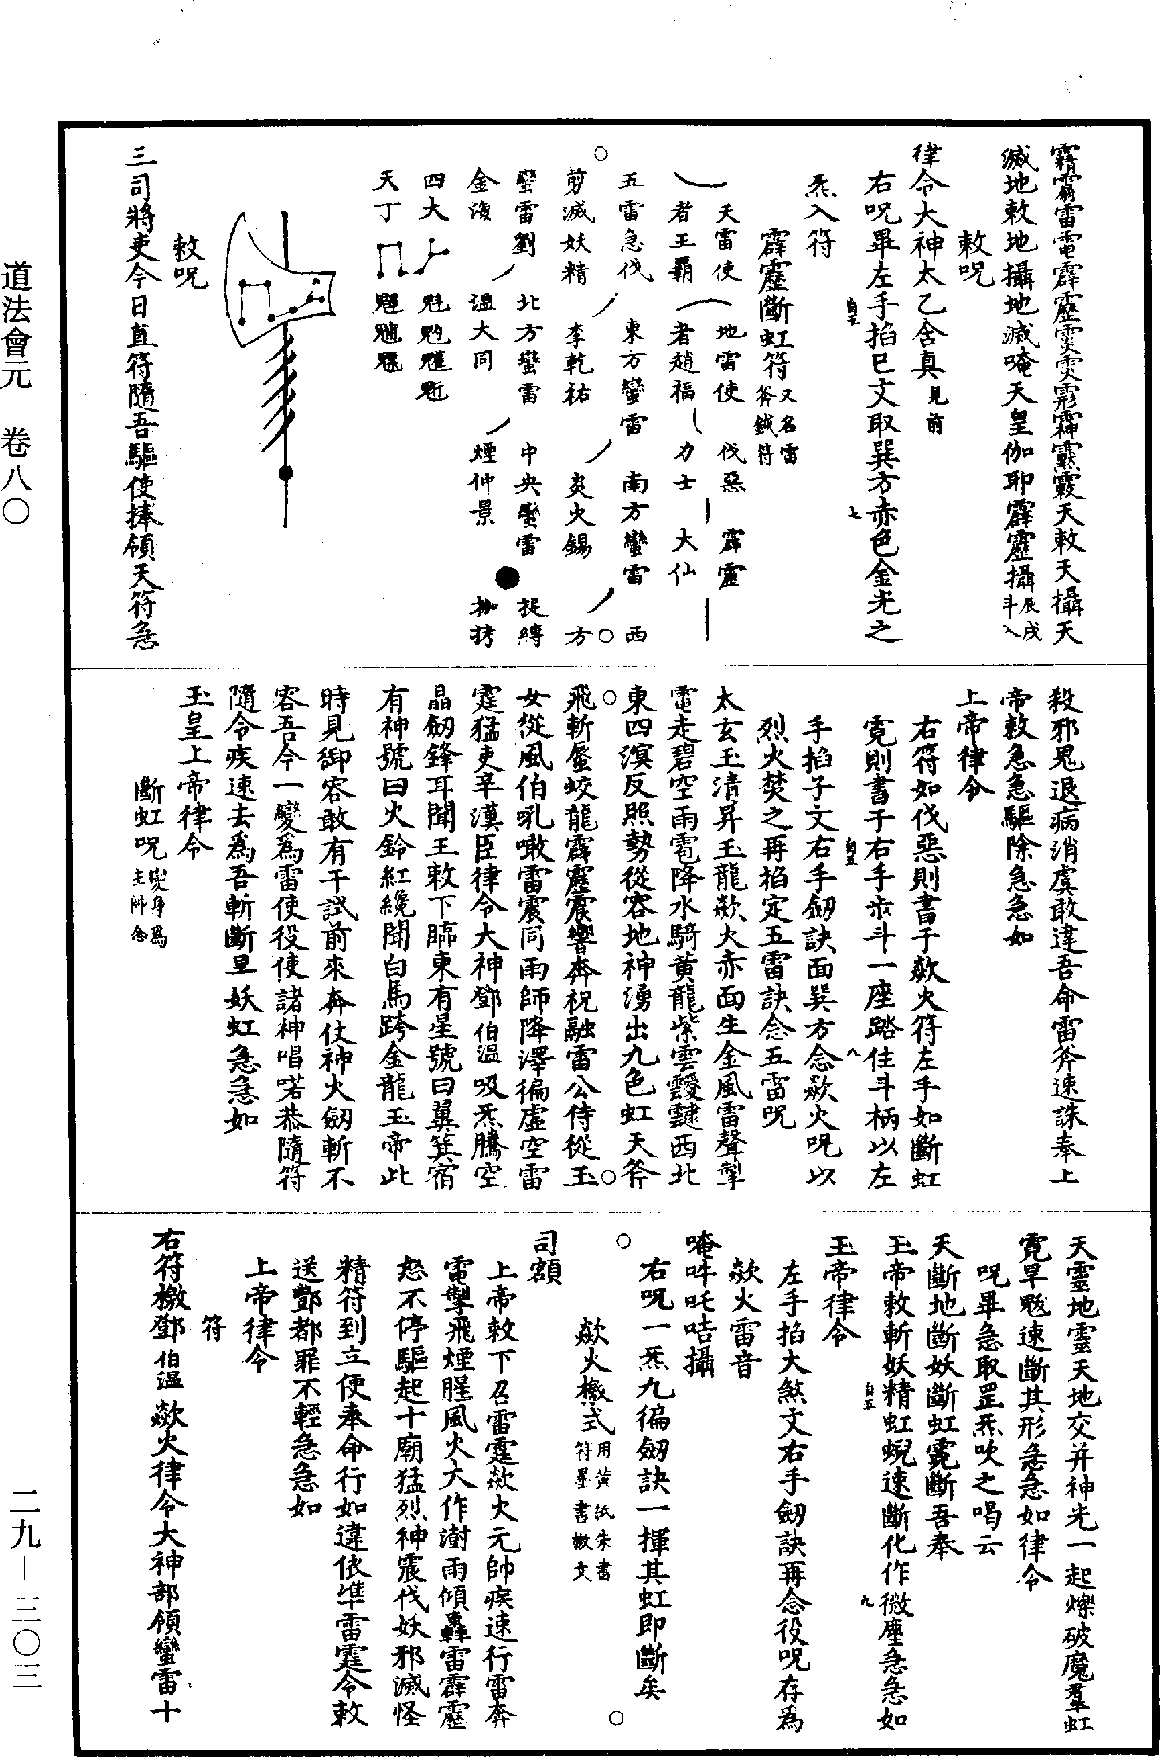 霹靂斷虹符又名雷斧鉞符
律令大神太乙含真見前
右呪畢左手掐巳文取巽方赤色金光之
炁入符
敕呪
天雷使者王霸
地雷使者趙福
伐惡力士
霹靂大仙
五雷急伐
剪滅妖精
東方蠻雷
李乾祐
南方蠻雷
炎火錫
西方蠻雷劉
北方蠻雷
溫大同
中央蠻雷
煙仲景
捉縛
枷拷
四大
天丁
敕呪
三司將吏今日直符隨吾驅使捧領天符急
殺邪鬼退病消虞敢違吾命雷斧速誅奉上
帝敕急急驅除急急如
上帝律令
右符如伐惡則書于歘火符左手如斷虹
霓則書于右手步斗一座踏住斗柄以左
手掐子文右手劒訣面巽方念歘火呪以
烈火焚之再掐定五雷訣念五雷呪
太玄玉清昇玉龍歘火赤面生金風雷聲掣
電走碧空雨雹降水騎黃龍紫雲靉靆西北
東四溟反照勢從容地神湧出九色虹天斧
飛斬蜃蛟龍霹靂震響奔祝融雷公侍從玉
女從風伯吼噉雷震同雨師降澤徧虛空雷
霆猛吏辛漢臣律令大神鄧伯溫吸炁騰空
晶劒鋒耳聞王敕下瞞東有星號曰冀箕宿
有神號曰火鈴紅纔聞白馬跨金龍玉帝此
時見御容敢有干試前來奔仗神火劒斬不
容吾今一變為雷使役使諸神唱喏恭隨符
隨令疾速去為吾斬斷旱妖虹急急如
玉皇上帝律令
斷虹呪變身為主帥念
天靈地靈天地交并神光一起爍破魔羣虹
霓旱魃速斷其形急急如律令
呪畢急取罡炁吹之唱云
天斷地斷妖斷虹霓斷吾奉
玉帝敕斬妖精虹蜺速斷化作微塵急急如
玉帝律令
左手掐大煞文右手劒訣再念役呪存為
歘火雷音
唵吽吒咭攝
右呪一炁九徧劒訣一揮其虹即斷矣
歘火檄式用黃紙朱書符墨書檄文
司額
上帝敕下召雷霆歘火元帥疾速行雷奔
電掣飛煙腥風火大作澍雨傾轟雷霹靂
怒不停驅起十廟猛烈神震伐妖邪滅怪
精符到立便奉命行如違依準雷霆令敕
送酆都罪不輕急急如
上帝律令
符
右符檄鄧伯溫歘火律令大神部領蠻雷十
道法會元 卷八〇
二九—三〇三